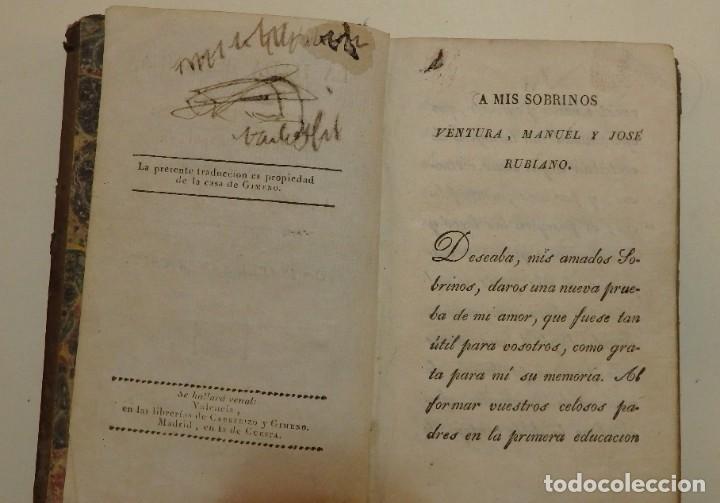 La presente traduccion es propiedad
de la casa de GIMENO.
Se hallará venal:
Valencia,
en las librerías de CABRERIZO y GIMENO.
Madrid, en la de CUESTA.
A MIS SOBRINOS
VENTURA, MANUEL Y JOSÉ
RUBIANO.
Deseaba, mis amados So-
brinos, daros una nueva prue-
ba de mi amor, que fuese tan
útil para vosotros, como gra-
ta para mí su memoria. Al
formar vuestros celosos pa-
dres en la primera educacion
todocoleccion